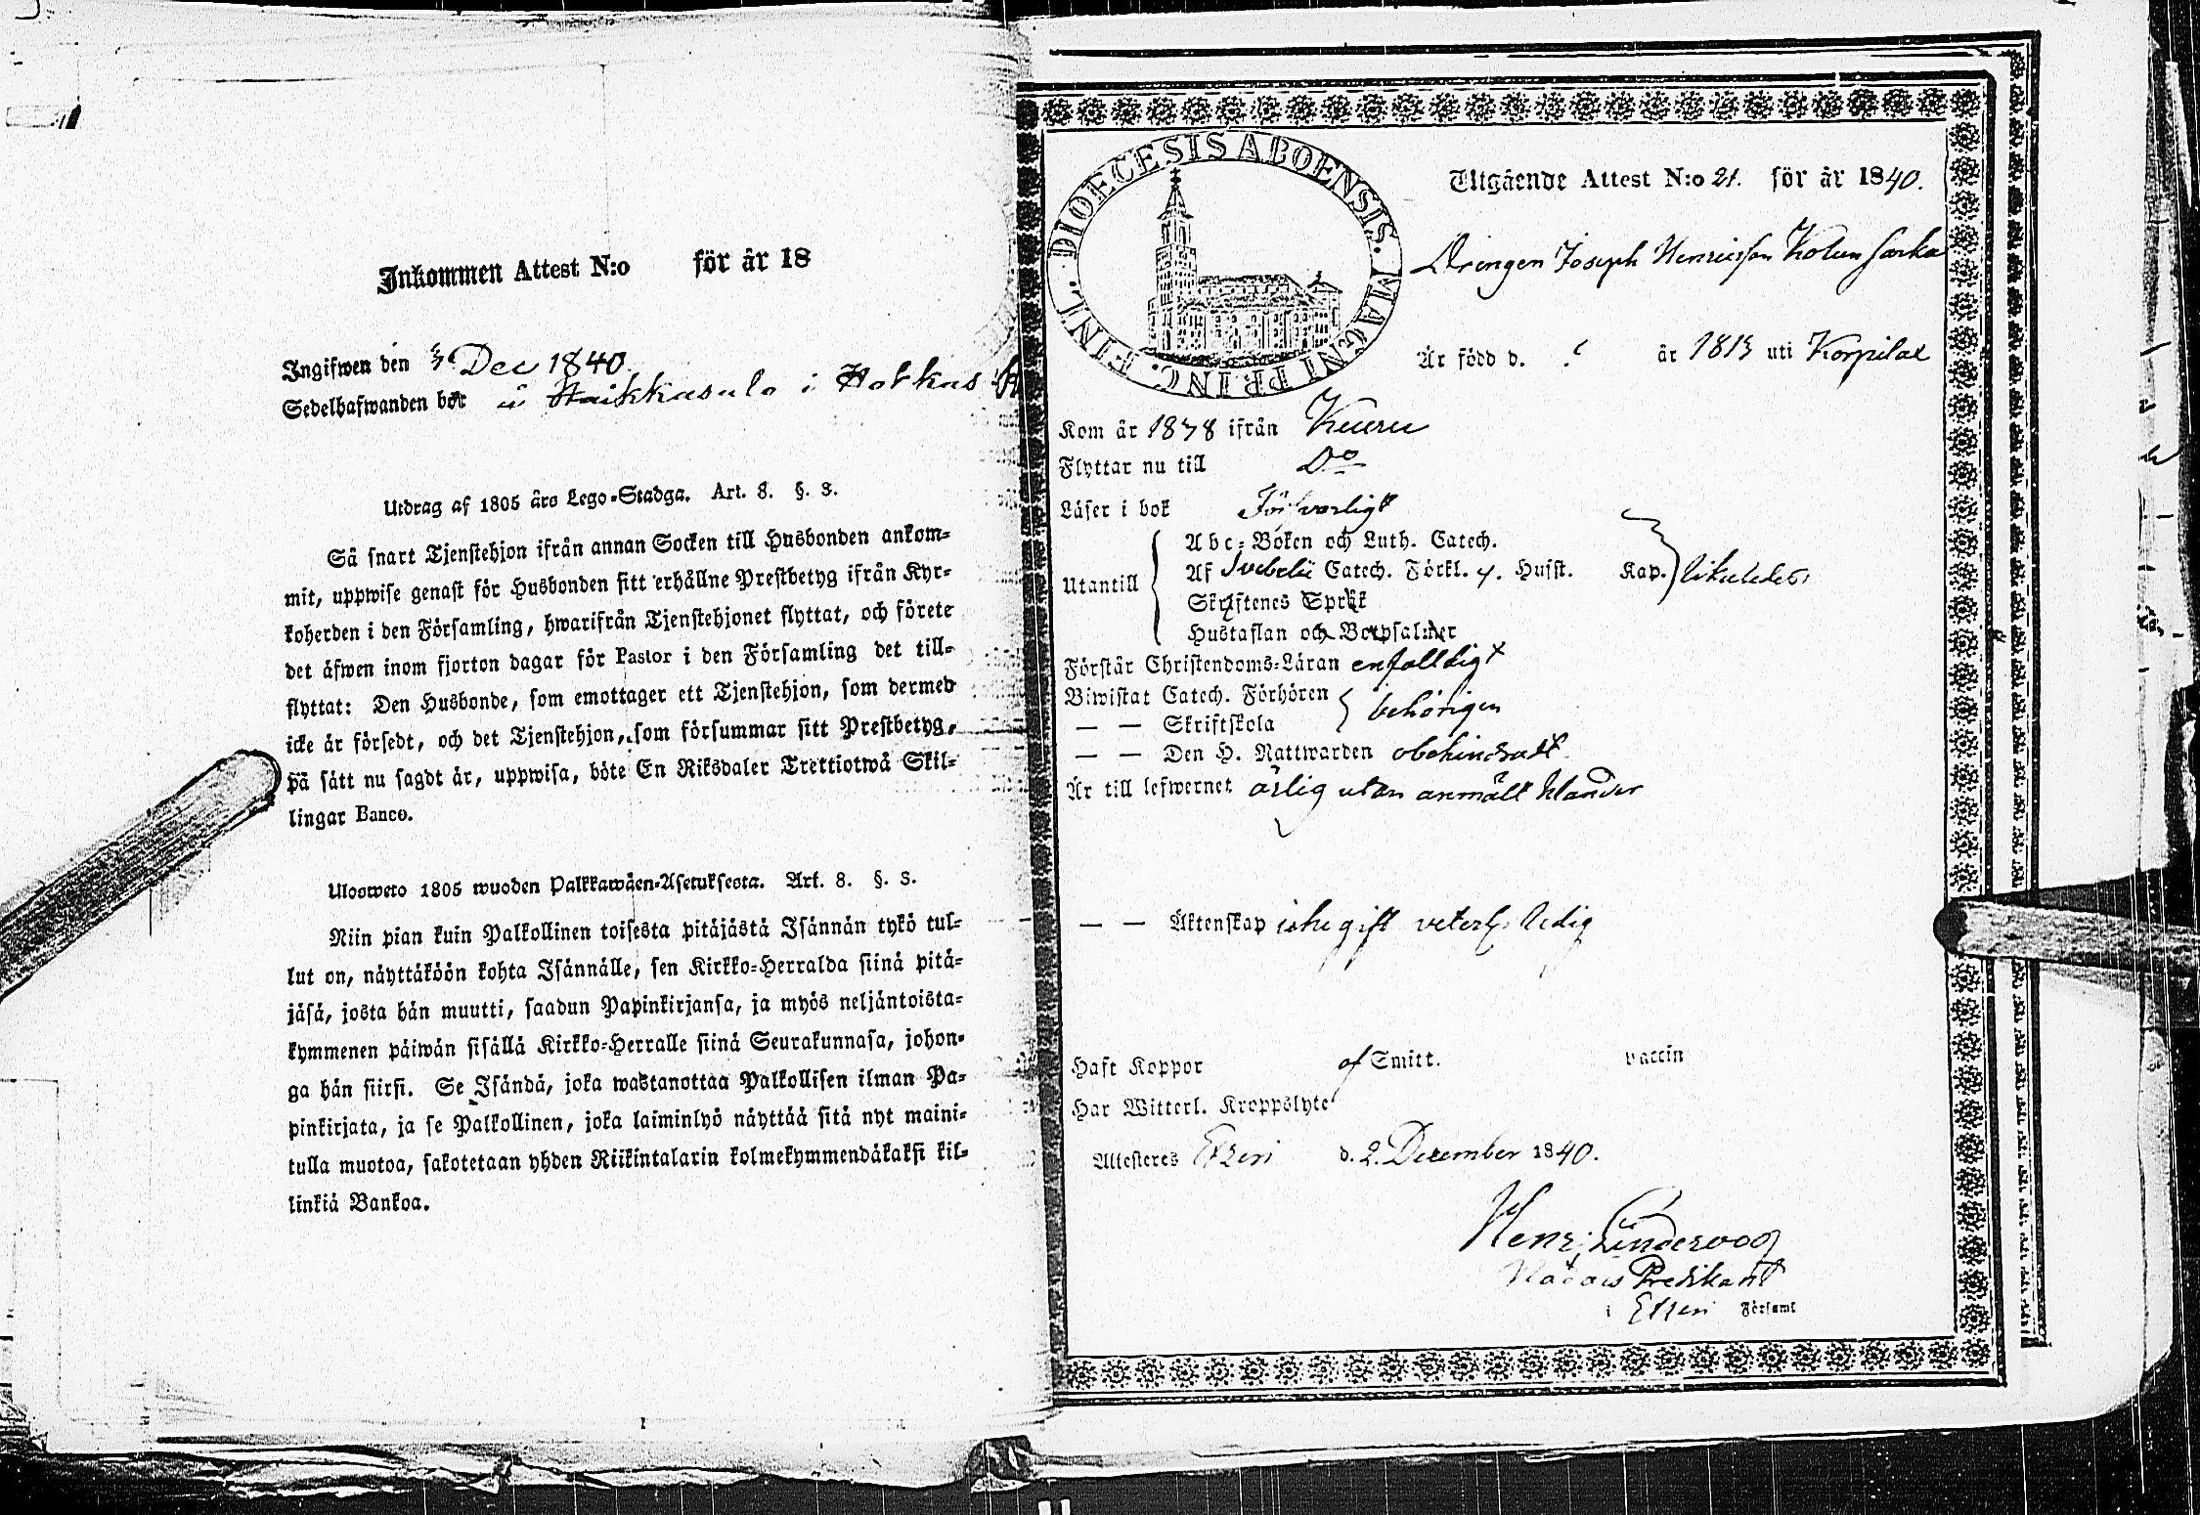 Inkommen Attest N:o för år 18
Ingifwen den 3 Dec 1840.
Sedelhafwanden bör å Haikkasulo i
Utdrag af 1805 års Lego-Stadga. Art. 8. §. 3.
Så snart Tjenstehjon ifrån annan Socken till Husbonden ankom-
mit, uppwise genast för Husbonden sitt erhållne Prestbetyg ifrån Kyr-
koherden i den Församling, hwarifrån Tjenstehjonet flyttat, och förete
det äfwen inom fjorton dagar för Pastor i den Församling det till-
flyttat: Den Husbonde, som emottager ett Tjenstehjon, som dermed
icke är försedt, och det Tjenstehjon, som försummar sitt Prestbetyg,
på sätt nu sagdt är, uppwisa, böte En Riksdaler Trettiotwå Skil-
lingar Banco.
Ulosweto 1805 wuoden Palkkawäen-Asetuksesta. Art. 8. §. 3.
Niin pian kuin Palkollinen toisesta pitäjästä Isännän tykö tul-
lut on, näyttäköön kohta Isännälle, sen Kirkko-Herralda siinä pitä-
jäsä, josta hän muutti, saadun Papinkirjansa, ja myös neljäntoista-
kymmenen päiwän sisällä Kirkko-Herralle siinä Seurakunnasa, johon-
ga hän siirsi. Se Isändä, joka wastanottaa Palkollisen ilman Pa-
pinkirjata, ja se Palkollinen, joka laiminlyö näyttää sitä nyt maini-
tulla muotoa, sakotetaan yhden Riikintalarin kolmekymmendäkaksi kil-
linkiä Bankoa.
DIOECESIS ABOENSIS. MAGNI PRINC. FINL.
Utgående Attest N:o 21. för år 1840.
Drengen Joseph Henricsson
Är född d. år 1813 uti Korpilax
Kom år 1838 ifrån Keuru
Flyttar nu till Do
Läser i bok Försvarligt
Utantill
Abc-Boken och Luth. Catech.
Af Svebelii Catech. Förkl. y. Husst. Kap. likaledes
Skriftenes Språk
Hustaflan och Botpsalmer
Förstår Christendoms-Läran enfalldigt
Biwistat Catech. Förhören
— — Skriftskola behörigen
— — Den H. Nattwarden obehindradt
Är till lefwernet ärlig utan anmält klander
— — Äktenskap icke gift veterl. ledig
Haft Koppor af Smitt. vaccin
Har Witterl. Kroppslyte
Attesteres Etzeri d. 2 December 1840.
Henr. Lindervog
Nådars Predikant
i Etseri Församl